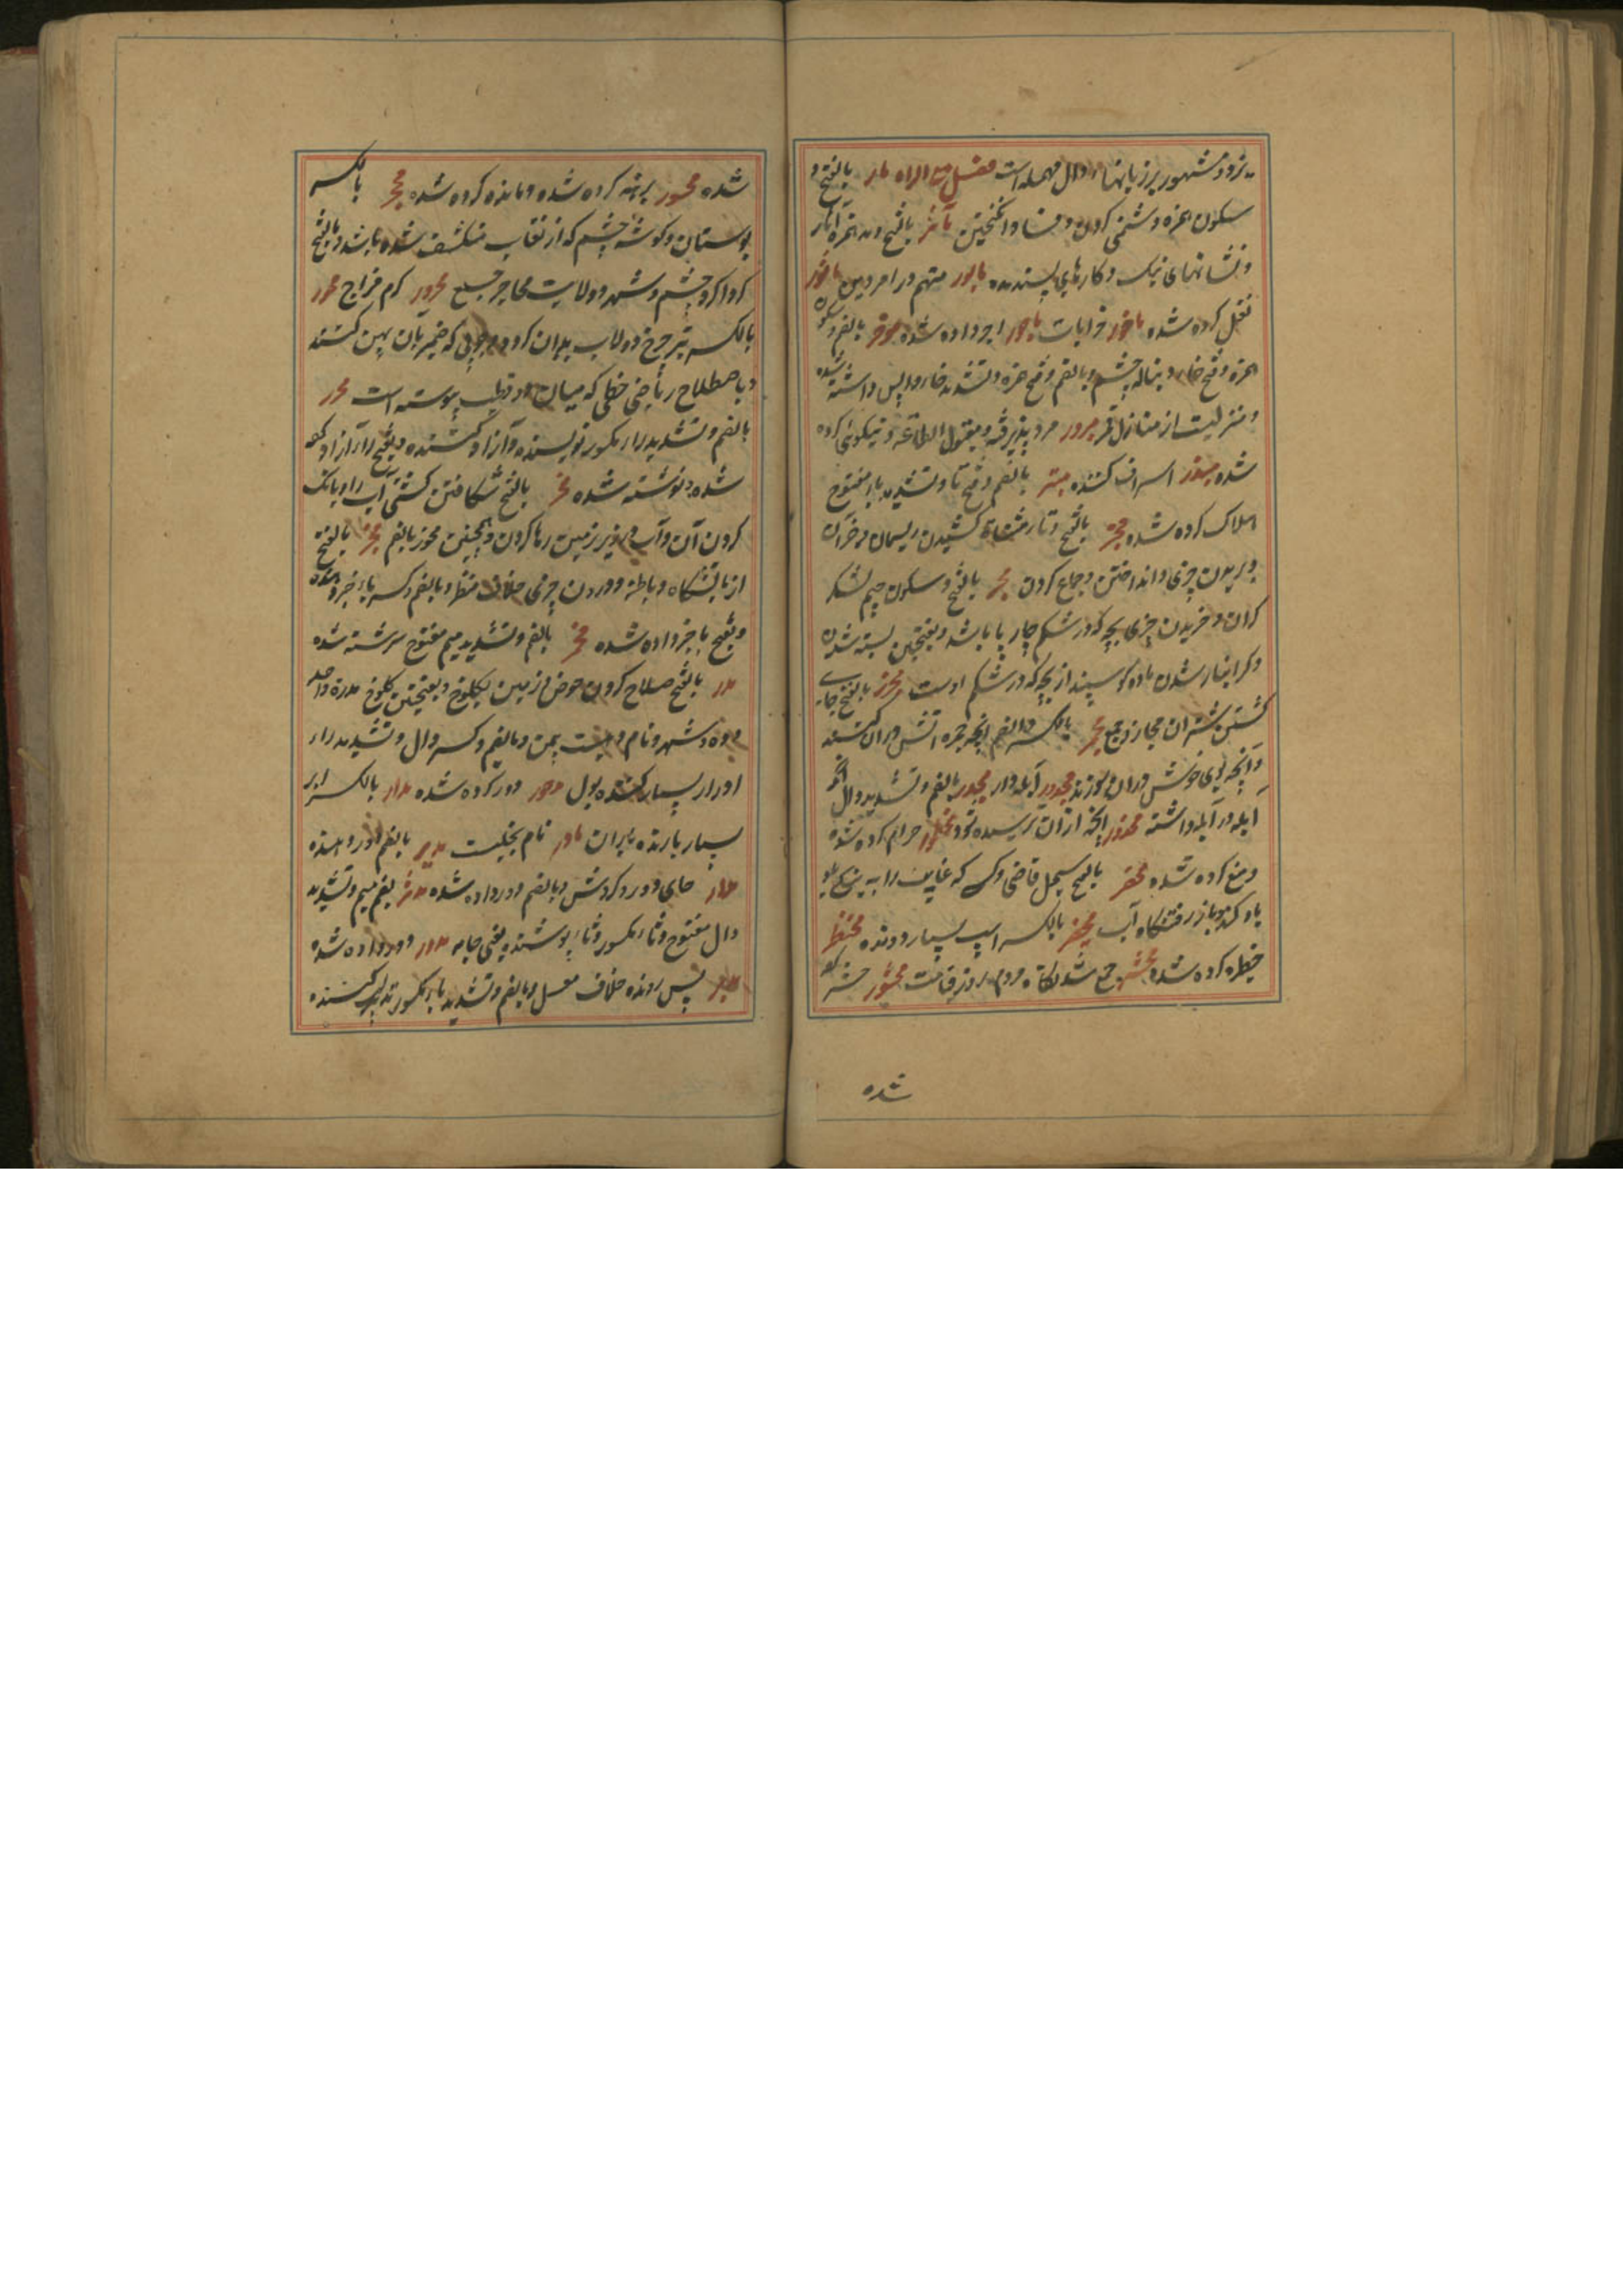 یزد و مشهور بر زبانها دال مهمله است فصل مع الراء مار بالفتح و
سکون همزه و دشمنی کردن و فساد انگیختن مآثر بالفتح و مد همزه آثار
و نشانهای نیک و کارهای پسندیده مابور متهم در امر دین ماثور
نقل کرده شده ماخور خرابات ماجور اجر داده شده موخر بالضم و سکون
همزه و فتح خاء دنباله چشم و بالضم و فتح همزه و تشدید خاء واپس داشته شده
و منزلیست از منازل قمر مبرور مرد پذیرفته و مقبول الطاعه و نیکوئی کرده
شده مبذر اسراف کننده متبر بالضم و فتح تا و تشدید باء مفتوح
هلاک کرده شده متر بالفتح و تاء مثناة کشیدن ریسمان و جز آن
و بریدن چیزی و انداختن و جماع کردن مجر بالفتح و سکون جیم لشکر
گران و خریدن چیزی بچه که در شکم چارپا باشد و بفتحتین بسته شدن
و گرانبار شدن ماده گوسپند از بچه که در شکم اوست مجزر بالفتح جای
کشتن شتران مجازر جمع مجمر بالکسر و الضم انچه جمره آتش دران کنند
و آنچه بوی خوش دران سوزند مجدور آبله دار مجدر بالضم و تشدید دال انکه
آبله در آبله داشته محذور انچه ازان ترسیده شود محظور حرام کرده شده
و منع کرده شده محضر بالفتح سجل قاضی و کسی که غایب را به نیکی
یاد کند و بازرفتنگاه آب محضر بالکسر اسپ بسیار دونده محتظر
حظیره کرده شده محشر جمع شدنگاه مردم روز قیامت محشور حشر کرده
شده
شده محسور برهنه کرده شده و مانده کرده شده محجر بالکسر
بوستان و گوشه چشم که از نقاب منکشف شده باشد و بالفتح
گرداگرد چشم و شهر و ولایت محاجر جمع محرور گرم مزاج محور
بالکسر تیر چرخ دولاب بدان گردد و چوبی که خمیر بان پهن کنند
و باصطلاح ریاضی خطی که میان دو قطب پیوسته است محرر
بالضم و تشدید راء مکسور نویسنده و آزاد کننده و بفتح راء آزاد کرده
شده و نوشته شده مخر بالفتح شکافتن کشتی آب را و بانگ
کردن آن و آب در زیر زمین رها کردن و همچنین مخور بالضم مخبر بالفتح
ازمایشگاه و باطن و درون چیزی خلاف منظر و بالضم و کسر باء خبر دهنده
و بفتح با خبر داده شده مخمر بالضم و تشدید میم مفتوح سرشته شده
مدر بالفتح صلاح کردن حوض و زمین بکلوخ و بفتحتین کلوخ مدرة واحد
و ده و شهر و نام دهیست بیمن و بالضم و کسر دال و تشدید راء
ادرار بسیار کننده بول مدحور دور کرده شده مدرار بالکسر ابر
بسیار بارنده باران مادر نام بخیلیست مدیر بالضم دور دهنده
مدار جای دور و گردش و بالضم دور داده شده مدثر بضم میم و تشدید
دال مفتوح و ثاء مکسور و ثاء پوشنده یعنی جامه مدور دور داده شده
مدبر پس رونده خلاف مقبل و بالضم و تشدید باء مکسور تدبیر کننده